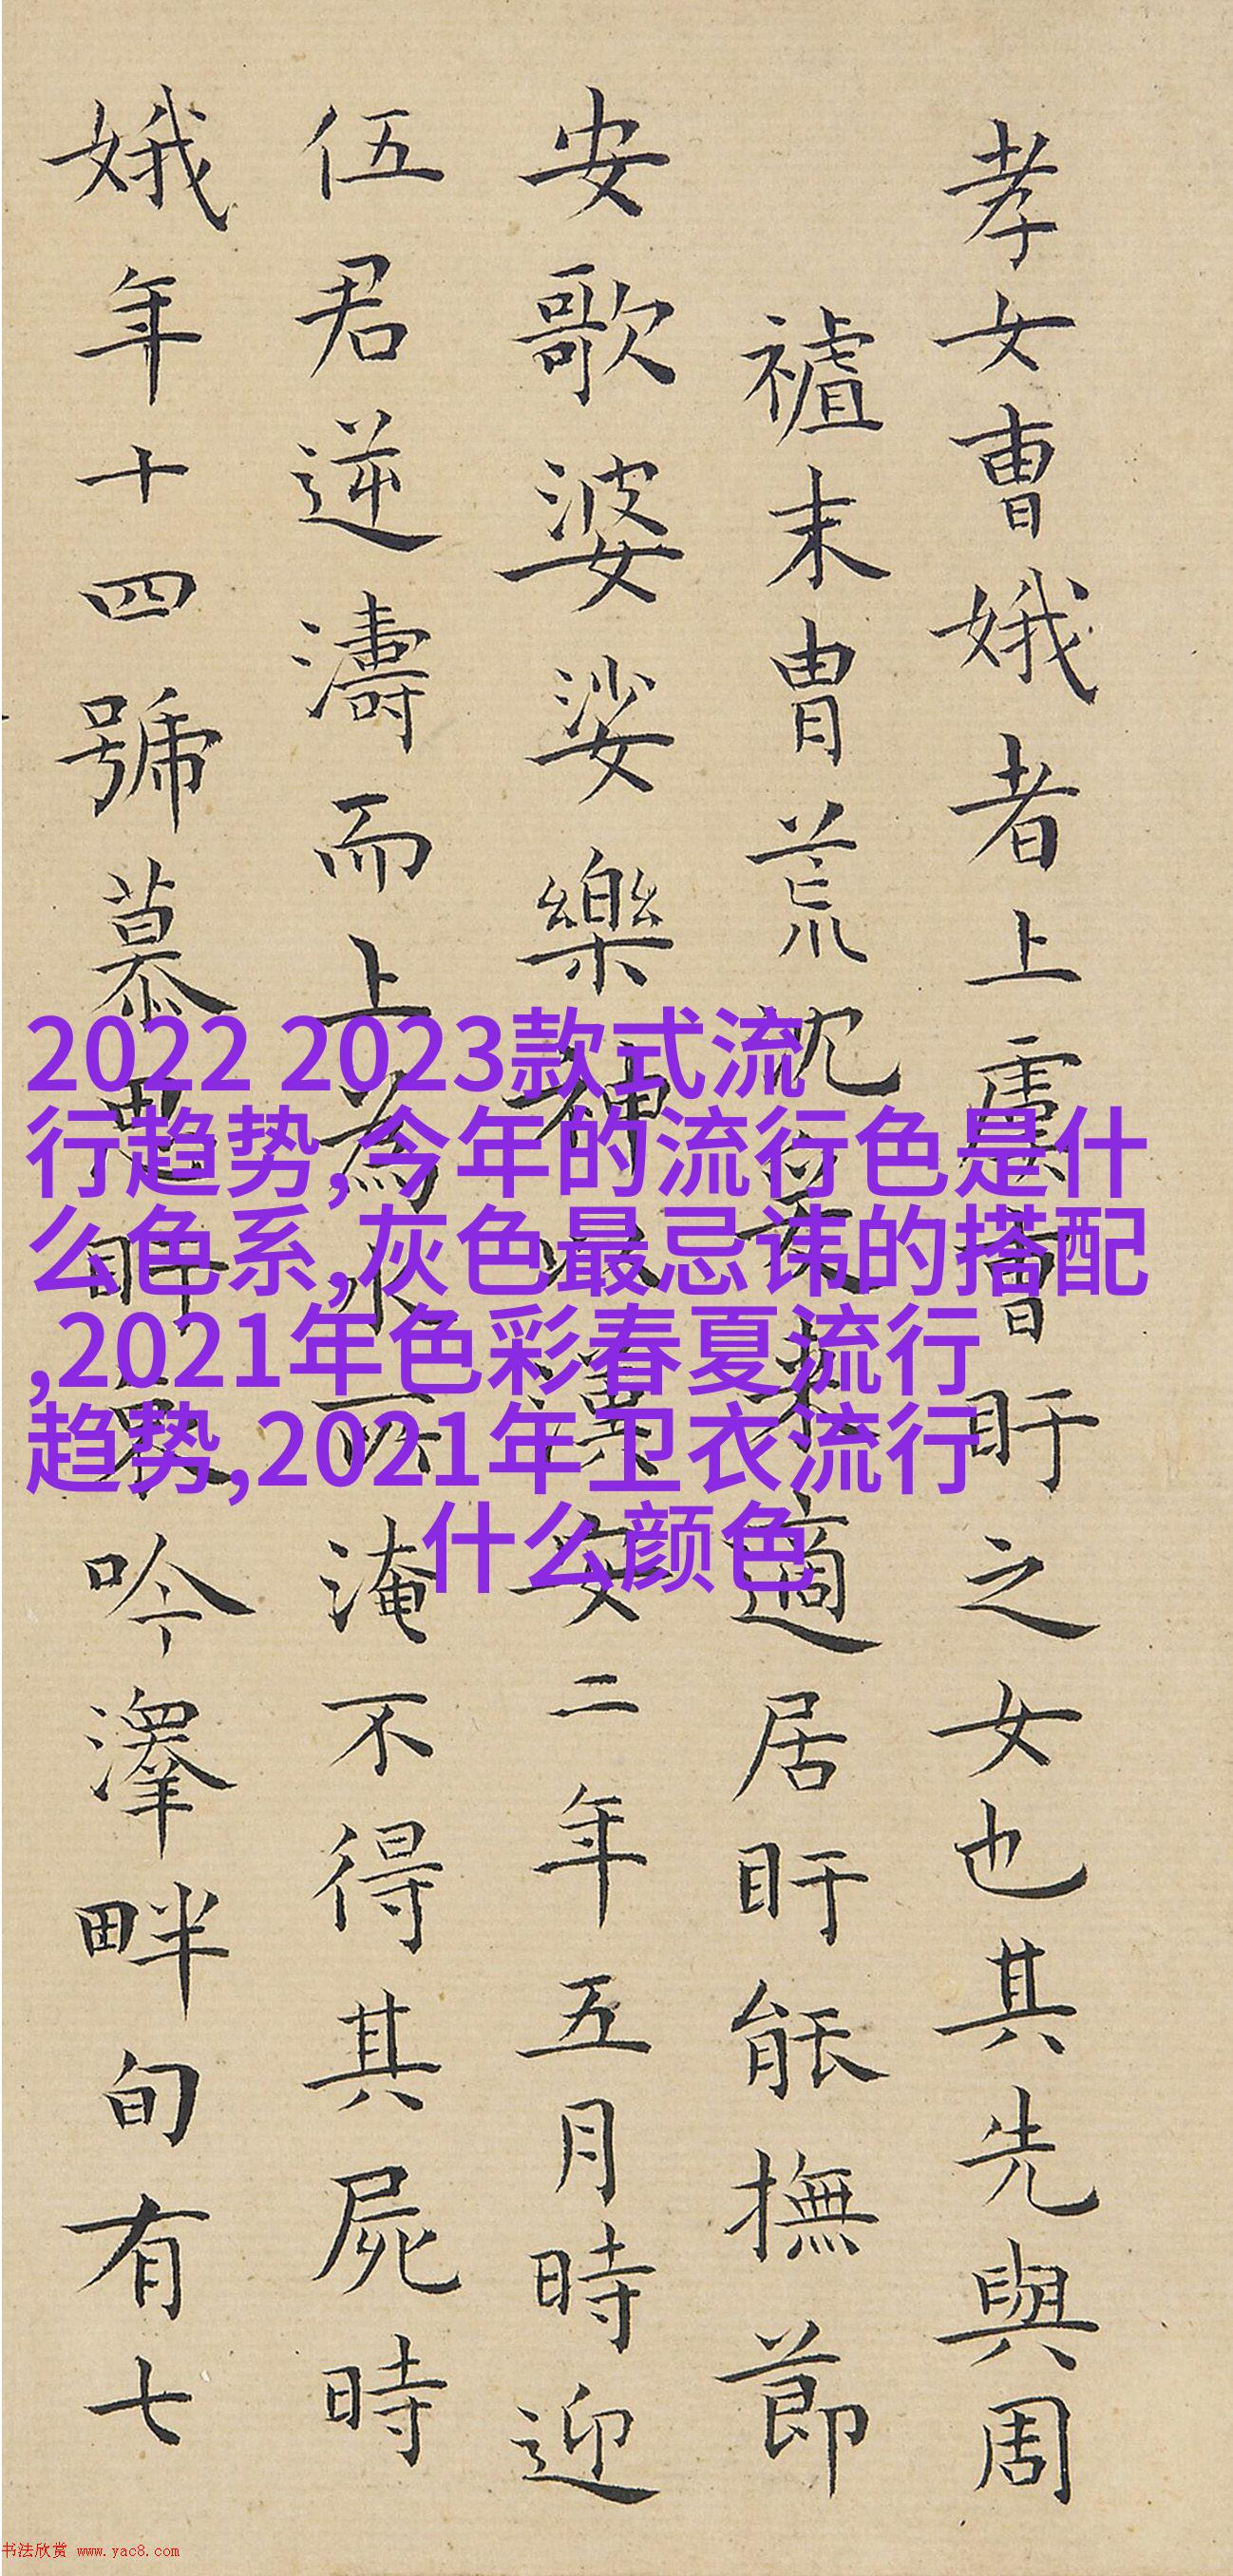 孝女曹娥者上虞曹盱之女也其先與周
末胄荒沈爰來適居盱能撫節
安歌婆娑樂神漢安二年五月時迎
伍君逆濤而上為水所淹不得其屍時
娥年十四號慕思盱哀吟澤畔旬有七
2022 2023款式流
行趋势,今年的流行色是什
么色系,灰色最忌讳的搭配
,2021年色彩春夏流行
趋势,2021年卫衣流行
什么颜色
书法欣赏 www.yac8.com